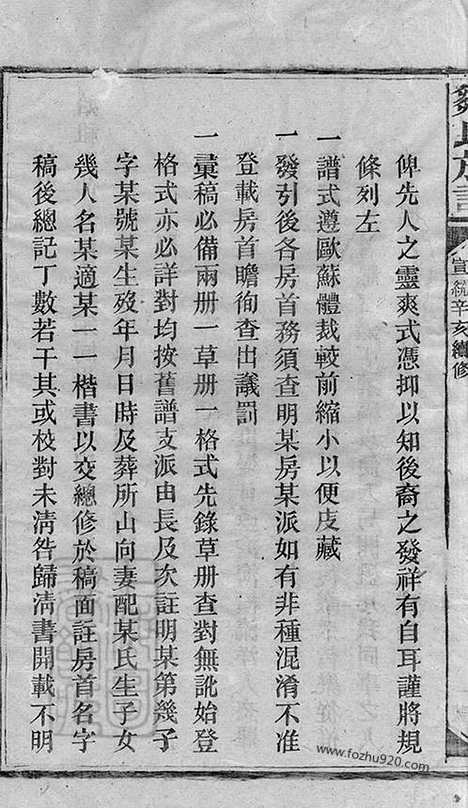 俾先人之靈爽式憑抑以知後裔之發祥有自耳謹將規
條列左
一譜式遵歐蘇體裁較前縮小以便庋藏
一發引後各房首務須查明某房某派如有非種混淆不准
登載房首瞻徇查出議罰
一彙稿必備兩册一草册一格式先錄草册查對無訛始登
格式亦必詳對均按舊譜支派由長及次註明某第幾子
字某號某生歿年月日時及葬所山向妻配某氏生子女
幾人名某適某一一楷書以交總修於稿面註房首名字
稿後總記丁數若干其或校對未淸咎歸淸書開載不明
宣統辛亥續修
www.fozhu920.com